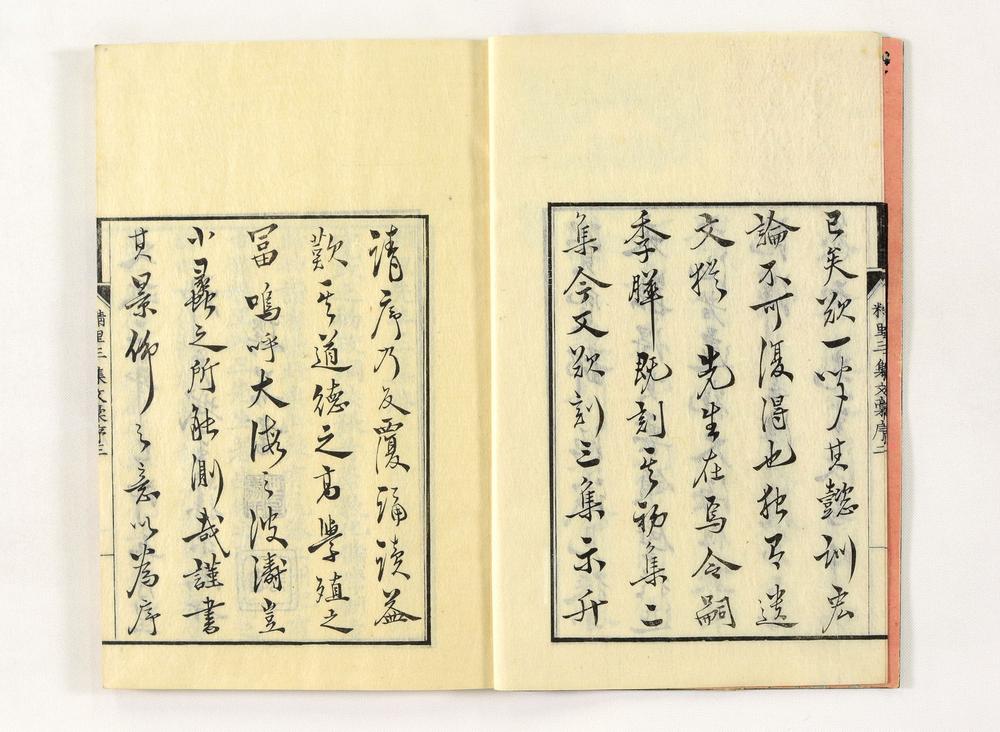 已矣欲一聞其懿訓宏
論不可復得也独有遺
文猶 先生在焉令嗣
季曄既刻其初集二
集今又欲刻三集示升
精里三集文稾序二
請序乃反覆誦讀益
歎其道德之高學殖之
富嗚呼大海之波濤豈
小蠡之所能測哉謹書
其景仰之意以為序
精里三集文稾序三